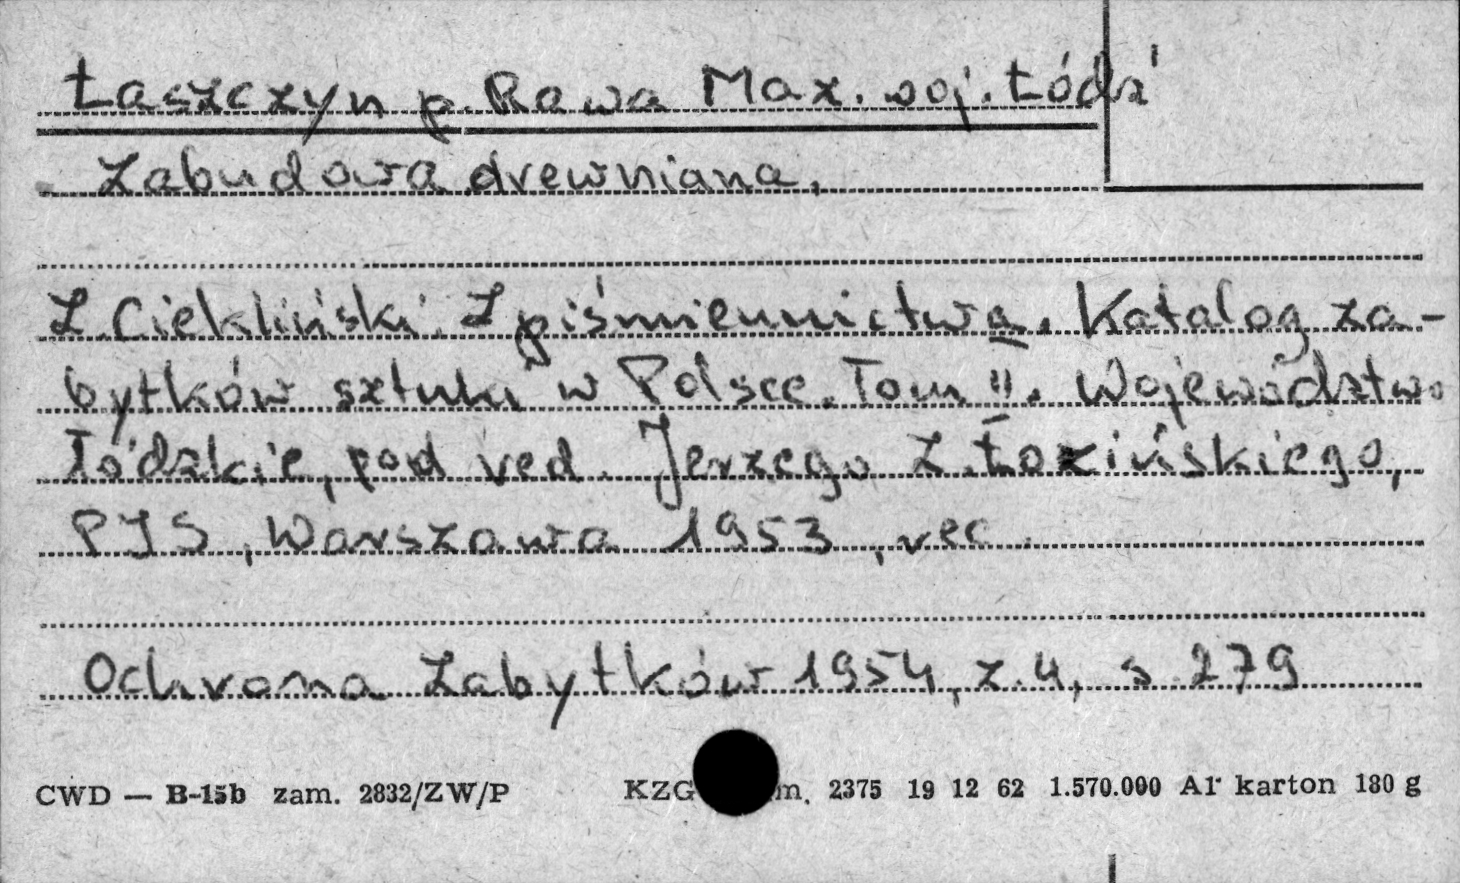 Łaszczyn p. Rawa Maz. woj. Łódź
Zabudowa drewniana.
Z. Ciekliński. Z piśmiennictwa. Katalog za-
bytków sztuki w Polsce. Tom II. Województwo
łódzkie, pod red. Jerzego Z. Łozińskiego,
PIS, Warszawa 1953, rec.
Ochrona Zabytków 1954, z. 4, s 279
CWD — B-15b zam. 2832/ZW/P KZG m. 2375 19 12 62 1.570.000 A1 karton 180 g